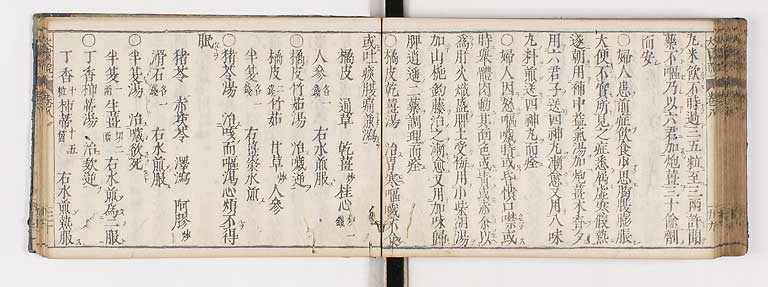 九米飲不時過三五粒至三兩許聞
藥不嘔乃以六君加炮薑三十餘劑
而安
○婦人患前症飲食少思胸膨脹
大便不實所見之症悉似虛寒假熱
遂朝用補中益氣湯加炮薑木香夕
用六君子送四神丸漸愈又用八味
丸料煎送四神丸而痊
○婦人因怒嘔噦時或昏憒口噤或
時樂體肉動其面色或青或赤余以
為肝火熾盛脾土受侮用小柴胡湯
加山梔鉤藤治之漸愈又用加味歸
脾逍遙二藥調理而痊
○橘皮乾薑湯 治胃寒嘔噦不食
或吐痰腹痛兼瀉
橘皮 通草 乾薑 桂心各一錢
人參一錢 右水煎服
○橘皮竹茹湯 治噦逆
橘皮二錢 竹茹 甘草炒 人參
半夏各一錢 右薑棗水煎
○猪苓湯 治咳而嘔瀉心煩不得
眠
猪苓 赤茯苓 澤瀉 阿膠炒
滑石各一錢 右水煎服
○半夏湯 治噦欲死
半夏一兩 生薑二兩切 右水煎為二服
○丁香柿蒂湯 治欬逆
丁香十粒 柿蒂十五箇 右水煎熱服